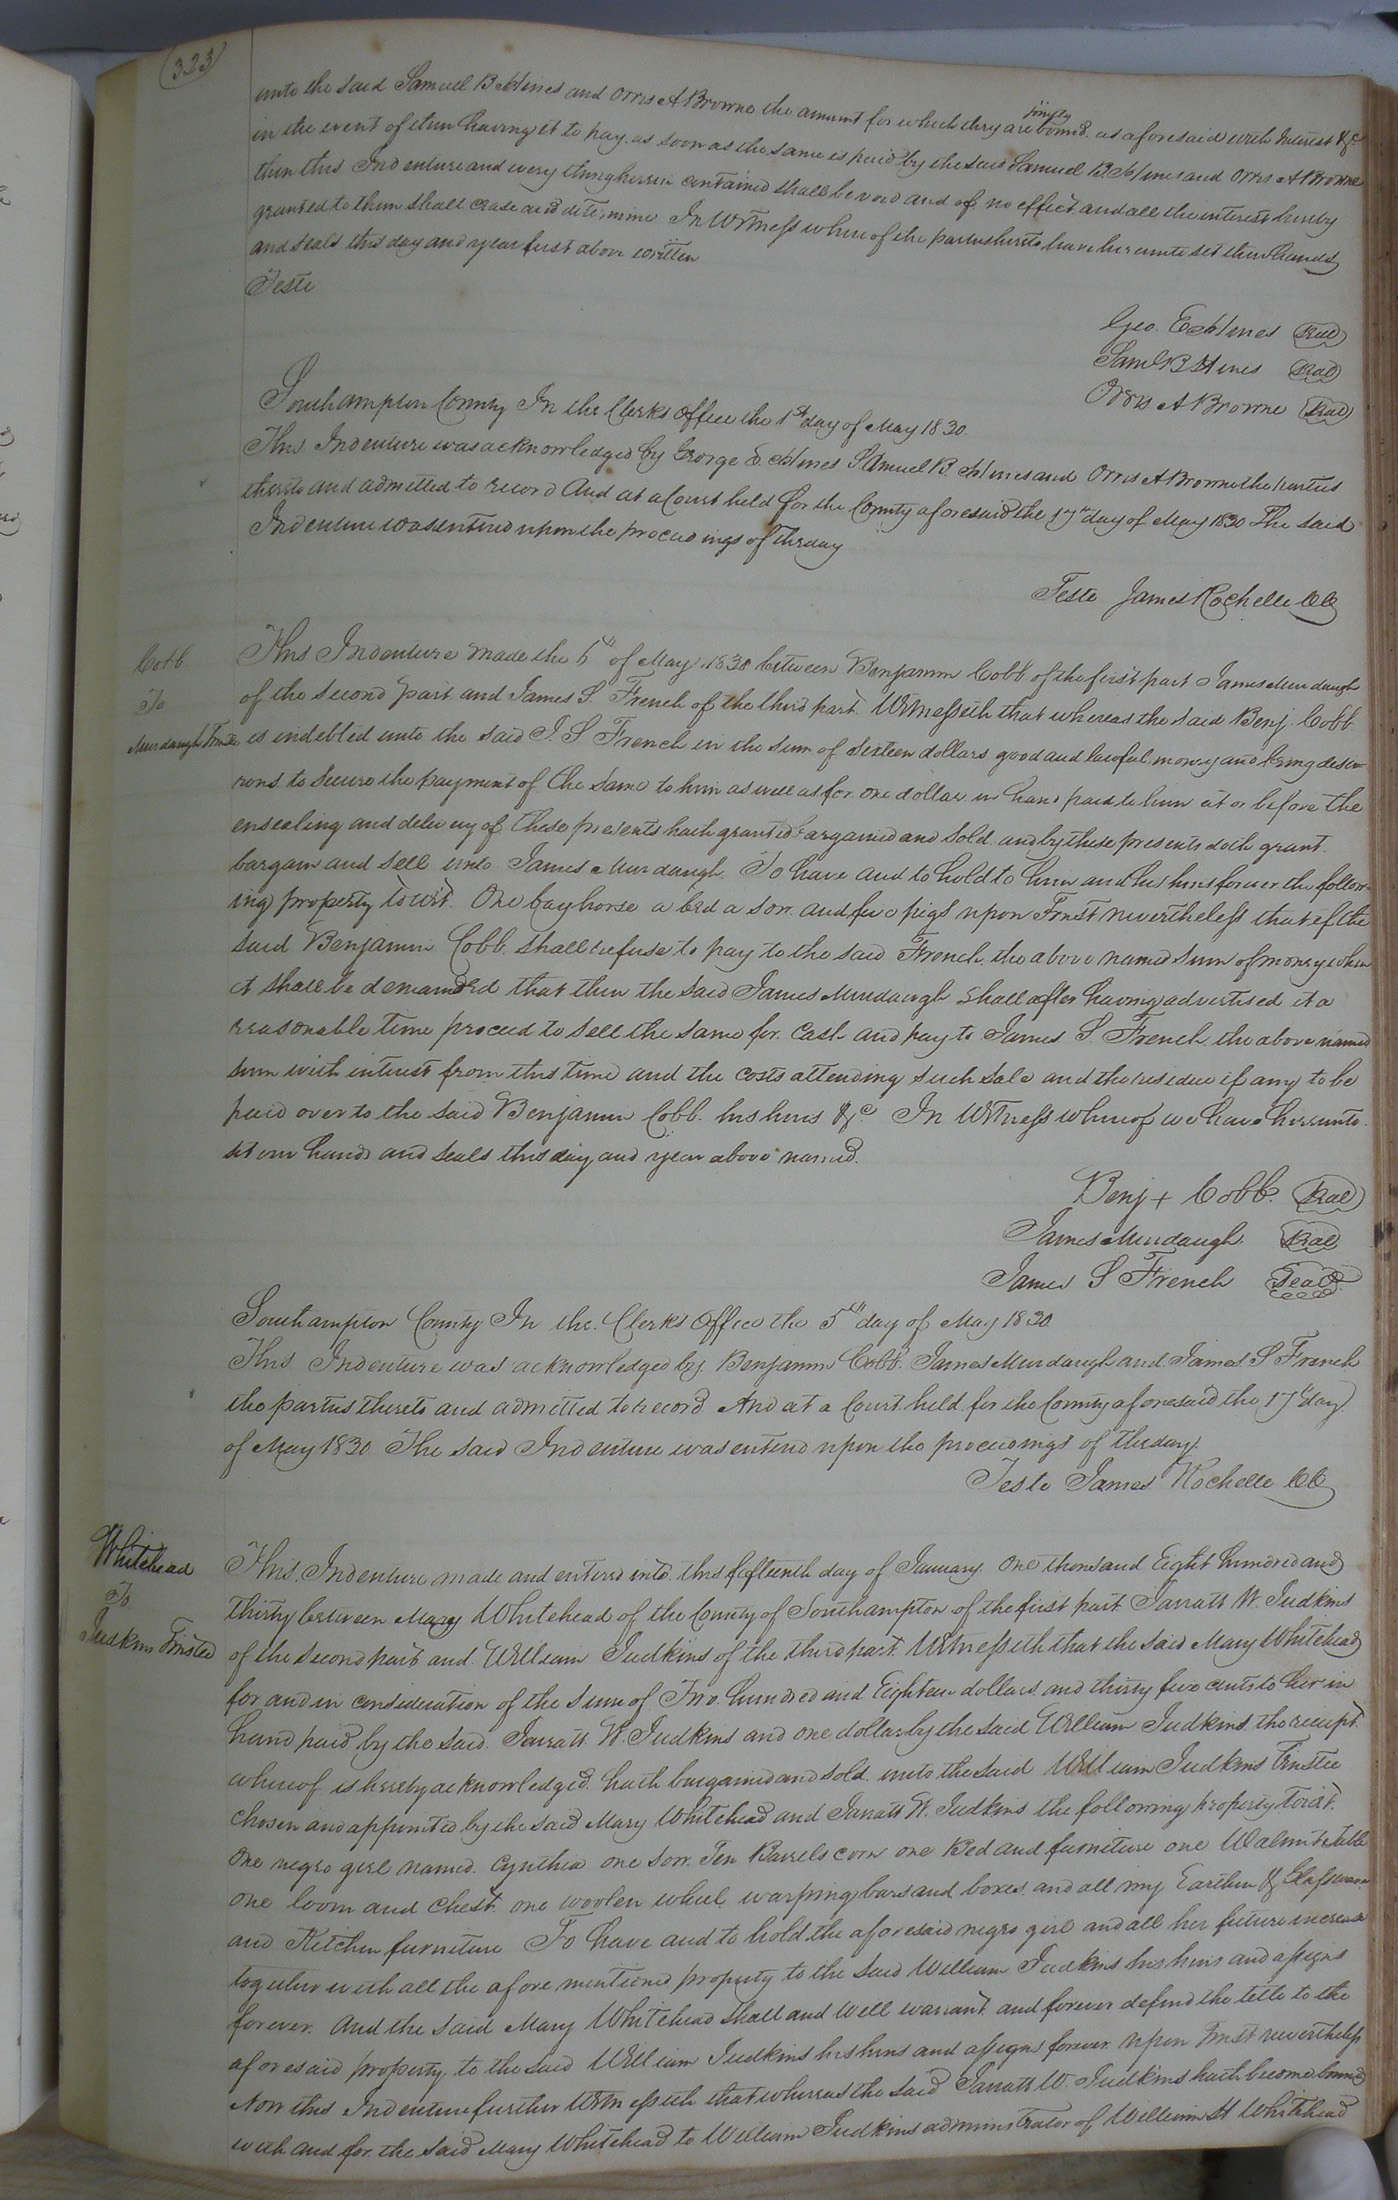 323
unto the said Samuel B Hines and Orris A Browne the amount for which they are jointly bound as aforesaid with Interest &c
in the event of their having it to pay as soon as the same is paid by the said Samuel B. Hines and Orris A Browne
then this Indenture and every thing herein contained shall be void and of no effect and all the interest hereby
granted to them shall cease and determine In Witness whereof the parties hereto have hereunto set their hands
and seals this day and year first above written
Teste
Geo. E Hines Seal
Saml B Hines Seal
Orris A Browne Seal
Southampton County In the Clerks Office the 1st day of May 1830
This Indenture was acknowledged by George E. Hines Samuel B. Hines and Orris A Browne the parties
thereto and admitted to record And at a Court held for the County aforesaid the 17th day of May 1830 The said
Indenture was entered upon the proceedings of the day
Teste James Rochelle CC
Cobb
To
Murdaugh Trustee
This Indenture made the 5th of May 1830 between Benjamin Cobb of the first part James Murdaugh
of the second part and James S. French of the third part. Witnesseth that whereas the said Benj. Cobb
is indebted unto the said J. S French in the sum of sixteen dollars good and lawful money and being desi-
rons to secure the payment of the same to him as well as for one dollar in hand paid to him at or before the
ensealing and delivery of these presents hath granted bargained and sold and by these presents doth grant
bargain and sell unto James Murdaugh. To have and to hold to him and his heirs forever the follow-
ing property towit. One bay horse a bed a sow and five pigs upon Trust nevertheless that if the
said Benjamin Cobb shall refuse to pay to the said French the above named sum of money when
it shall be demanded that then the said James Murdaugh shall after having advertised it a
reasonable time proceed to sell the same for cash and pay to James S. French the above named
sum with interest from this time and the costs attending such sale and the residue if any to be
paid over to the said Benjamin Cobb his heirs &c. In Witness whereof we have hereunto
set our hands and seals this day and year above named.
Benj + Cobb. Seal
James Murdaugh. Seal
James S French Seal
Southampton County In the Clerks Office the 5th day of May 1830
This Indenture was acknowledged by Benjamin Cobb. James Murdaugh and James S French
the parties thereto and admitted to record And at a Court held for the County aforesaid the 17th day
of May 1830 The said Indenture was entered upon the proceedings of the day.
Teste James Rochelle CC
Whitehead
To
Judkins Trustee
This Indenture made and entered into this fifteenth day of January One thousand Eight hundred and
thirty between Mary Whitehead of the County of Southampton of the first part Jarratt W. Judkins
of the second part and William Judkins of the third part. Witnesseth that the said Mary Whitehead
for and in consideration of the sum of Two hundred and Eighteen dollars and thirty five cents to her in
hand paid by the said Jarratt W. Judkins and one dollar by the said William Judkins the receipt
whereof is hereby acknowledged hath bargained and sold unto the said William Judkins Trustee
chosen and appointed by the said Mary Whitehead and Jarratt W. Judkins the following property towit.
One negro girl named Cynthia one sow Ten Barrels corn one Bed and furniture one Walnut table
one loom and Chest one woolen wheel warping bars and boxes and all my Earthen & Glassware
and Kitchen furniture To have and to hold the aforesaid negro girl and all her future increase
together with all the afore mentioned property to the said William Judkins his heirs and assigns
forever. And the said Mary Whitehead shall and will warrant and forever defend the title to the
aforesaid property to the said William Judkins his heirs and assigns forever upon Trust nevertheless
Now this Indenture further Witnesseth that whereas the said Jarratt W. Judkins hath become bound
with and for the said Mary Whitehead to William Judkins administrator of William H Whitehead